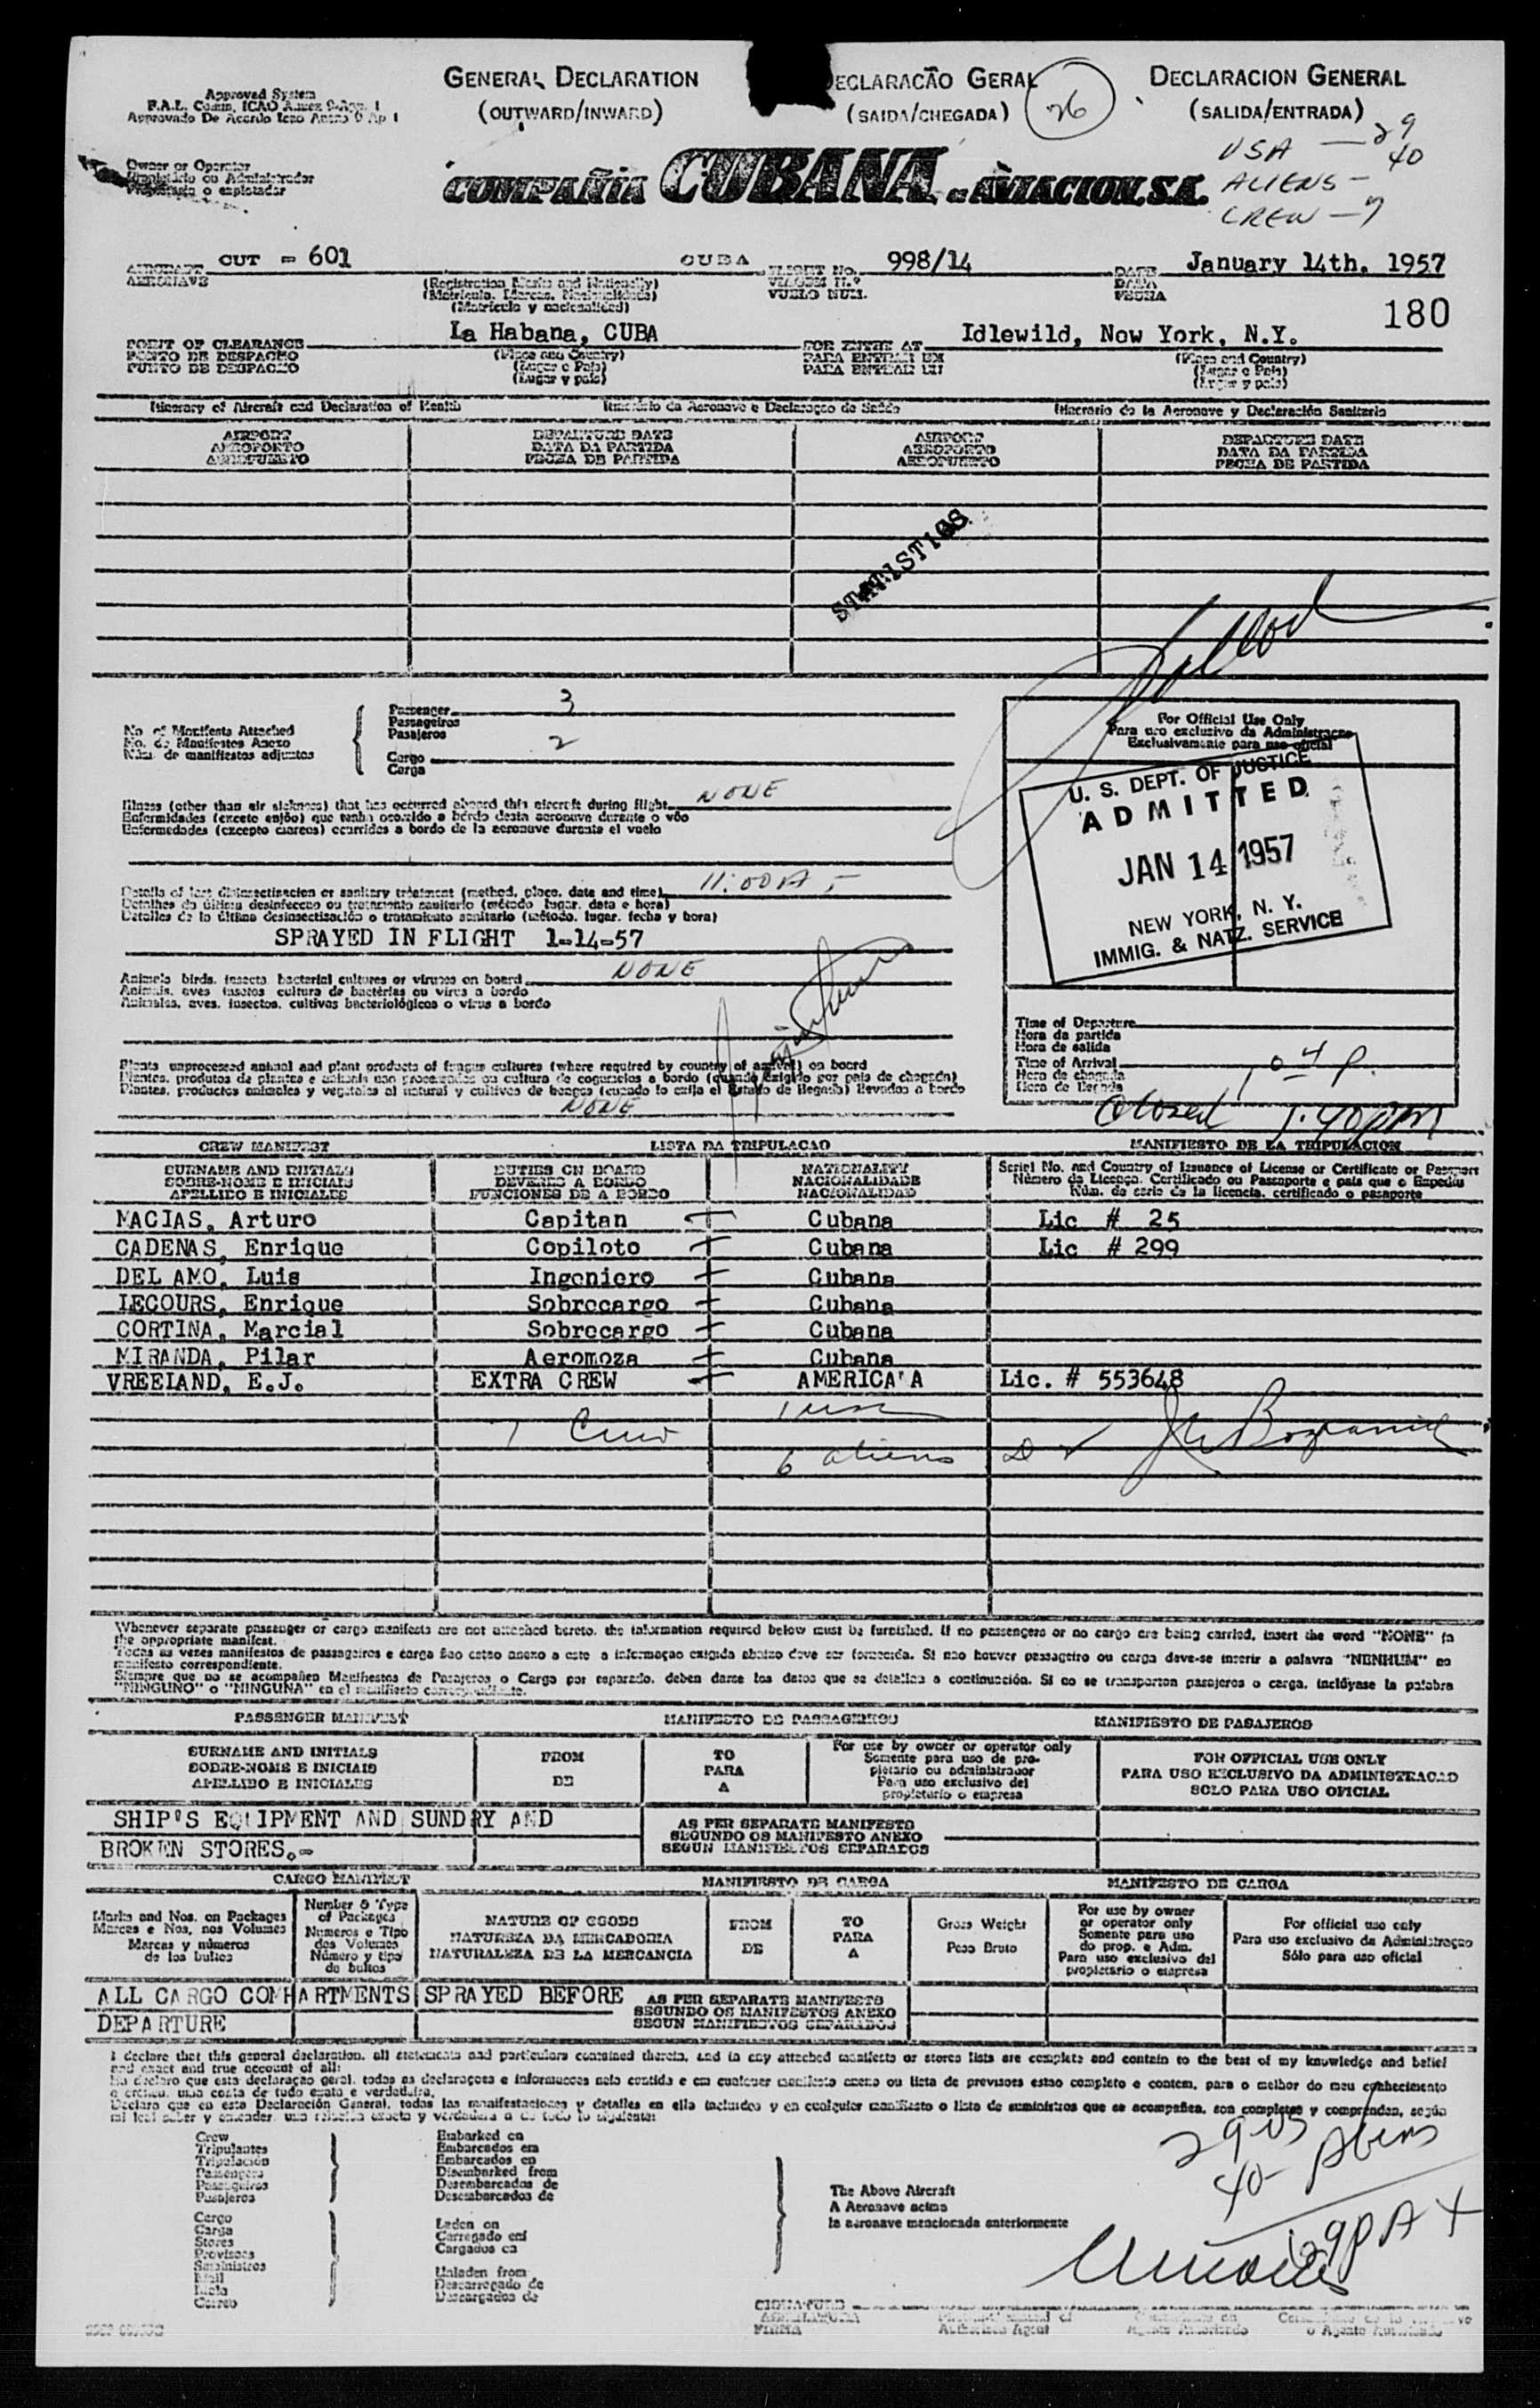 GENERAL DECLARATION
(OUTWARD/INWARD)
ECLARACÃO GERAL
(SAIDA/CHEGADA)
26
DECLARACION GENERAL
(SALIDA/ENTRADA)
Approved System
USA — 29
ALIENS — 40
CREW — 7
Owner or Operator
COMPAÑIA CUBANA DE AVIACION, S.A.
AIRCRAFT CUT - 601 CUBA FLIGHT No. 998/14 DATE January 14th. 1957
AERONAVE
VUELO NUM.
FECHA
(Matricula y nacionalidad)
180
PORT OF CLEARANCE La Habana, CUBA FOR ENTRY AT Idlewild, New York, N.Y.
PONTO DE DESPACHO (Place and Country) PARA ENTRAR EM (Place and Country)
PUNTO DE DESPACHO (Lugar y pais) PARA ENTRAR EN (Lugar y pais)
Itinerary of Aircraft and Declaration of Health Itinerario da Aeronave e Declaraçao de Saúde Itinerario de la Aeronave y Declaración Sanitaria
AIRPORT DEPARTURE DATE AIRPORT DEPARTURE DATE
AEROPORTO DATA DA PARTIDA AEROPORTO DATA DA PARTIDA
AEROPUERTO FECHA DE PARTIDA AEROPUERTO FECHA DE PARTIDA
STATISTICS
No. of Manifests Attached
No. de Manifestos Anexo
Núm. de manifiestos adjuntos
Passenger 3
Passageiros
Pasajeros
2
Cargo
Carga
For Official Use Only
Para uso exclusivo da Administraçao
Exclusivamente para uso oficial
U. S. DEPT. OF JUSTICE
ADMITTED
JAN 14 1957
NEW YORK, N. Y.
IMMIG. & NATZ. SERVICE
Illness (other than air sickness) that has occurred aboard this aircraft during flight NONE
Enfermidades (exceto enjôo) que tenha ocorrido a bordo desta aeronave durante o vôo
Enfermedades (excepto mareos) ocurridas a bordo de la aeronave durante el vuelo
Details of last disinsectisacion or sanitary treatment (method, place, date and time) 11:00 A
Detalhes da última desinfeccao ou tratamento sanitario (método lugar, data e hora)
Detalles de la última desinsectización o tratamiento sanitario (método, lugar, fecha y hora)
SPRAYED IN FLIGHT 1-14-57
Animals birds, insects bacterial cultures or viruses on board NONE
Animais, aves insetos cultura de bactérias ou virus a bordo
Animales, aves, insectos, cultivos bacteriológicos o virus a bordo
Plants unprocessed animal and plant products of fungus cultures (where required by country of arrival) on board
Plantas, productos animales y vegetales al natural y cultivos de hongos (cuando lo exija el Estado de llegada) llevados a bordo
NONE
Time of Departure
Hora da partida
Hora de salida
Time of Arrival 1 04 P.
Hora de chegada
Hora de llegada
Closed 1:40 PM
CREW MANIFEST LISTA DA TRIPULACAO MANIFIESTO DE LA TRIPULACION
SURNAME AND INITIALS DUTIES ON BOARD NATIONALITY Serial No. and Country of Issuance of License or Certificate or Passport
SOBRE-NOME E INICIAIS DEVERES A BORDO NACIONALIDADE Número da Licença. Certificado ou Passaporte e pais que o Expediu
APELLIDO E INICIALES FUNCIONES DE A BORDO NACIONALIDAD Núm. de serie de la licencia, certificado o pasaporte
MACIAS, Arturo Capitan Cubana Lic # 25
CADENAS, Enrique Copiloto Cubana Lic # 299
DEL AMO, Luis Ingeniero Cubana
LECOURS, Enrique Sobrecargo Cubana
CORTINA, Marcial Sobrecargo Cubana
MIRANDA, Pilar Aeromoza Cubana
VREELAND, E.J. EXTRA CREW AMERICA'A Lic. # 553648
7 Crew
6 aliens
Whenever separate passenger or cargo manifests are not attached hereto, the information required below must be furnished. If no passengers or no cargo are being carried, insert the word "NONE" in
the appropriate manifest.
Todas as vezes manifestos de passageiros e carga não estao anexo a este a informaçao exigida abaixo deve ser fornecida. Si nao houver passageiro ou carga deve-se inserir a palavra "NENHUM" no
manifesto correspondiente.
Siempre que no se acompañen Manifiestos de Pasajeros o Carga por separado, deben darse los datos que se detallan a continuación. Si no se transportan pasajeros o carga, inclúyase la palabra
"NINGUNO" o "NINGUNA" en el manifiesto correspondiente.
PASSENGER MANIFEST MANIFESTO DE PASSAGEIROS MANIFIESTO DE PASAJEROS
SURNAME AND INITIALS
SOBRE-NOME E INICIAIS
APELLIDO E INICIALES
FROM
DE
TO
PARA
A
For use by owner or operator only
Somente para uso de pro-
pietario ou administrador
Para uso exclusivo del
propietario o empresa
FOR OFFICIAL USE ONLY
PARA USO EXCLUSIVO DA ADMINISTRACAO
SOLO PARA USO OFICIAL
SHIP'S EQUIPMENT AND SUNDRY AND
BROKEN STORES.-
AS PER SEPARATE MANIFESTO
SEGUNDO OS MANIFESTO ANEXO
SEGUN MANIFIESTOS SEPARADOS
CARGO MANIFEST MANIFIESTO DE CARGA MANIFESTO DE CARGA
Marks and Nos. on Packages
Marcas e Nos. nos Volumes
Marcas y números
de los bultos
Number & Type
of Packages
Numeros e Tipo
dos Volumes
Número y tipo
de bultos
NATURE OF GOODS
NATUREZA DA MERCADORIA
NATURALEZA DE LA MERCANCIA
FROM
DE
TO
PARA
A
Gross Weight
Peso Bruto
For use by owner
or operator only
Somente para uso
do prop. e Adm.
Para uso exclusivo del
propietario o empresa
For official use only
Para uso exclusivo da Administraçao
Sólo para uso oficial
ALL CARGO COMPARTMENTS SPRAYED BEFORE
DEPARTURE
AS PER SEPARATE MANIFESTO
SEGUNDO OS MANIFESTOS ANEXO
SEGUN MANIFIESTOS SEPARADOS
I declare that this general declaration, all statements and particulars contained therein, and in any attached manifests or stores lists are complete and contain to the best of my knowledge and belief
and exact and true account of all:
Declaro que en esta Declaración General, todas las manifestaciones y detalles en ella incluidos y en cualquier manifiesto o lista de suministros que se acompañen, son completos y comprenden, según
Crew
Tripulantes
Tripulación
Passengers
Passageiros
Pasajeros
Cargo
Carga
Stores
Provisoes
Suministros
Mail
Mala
Correo
Embarked on
Embarcados em
Embarcados en
Disembarked from
Desembarcados de
Desembarcados de
Laden on
Carregado em
Cargados en
Unladen from
Descarregado de
Descargados de
The Above Aircraft
A Aeronave acima
la aeronave mencionada anteriormente
29 US
40 Aliens
SIGNATURE
ASSINATURA
FIRMA
Authorized Agent
o Agente Autorizado